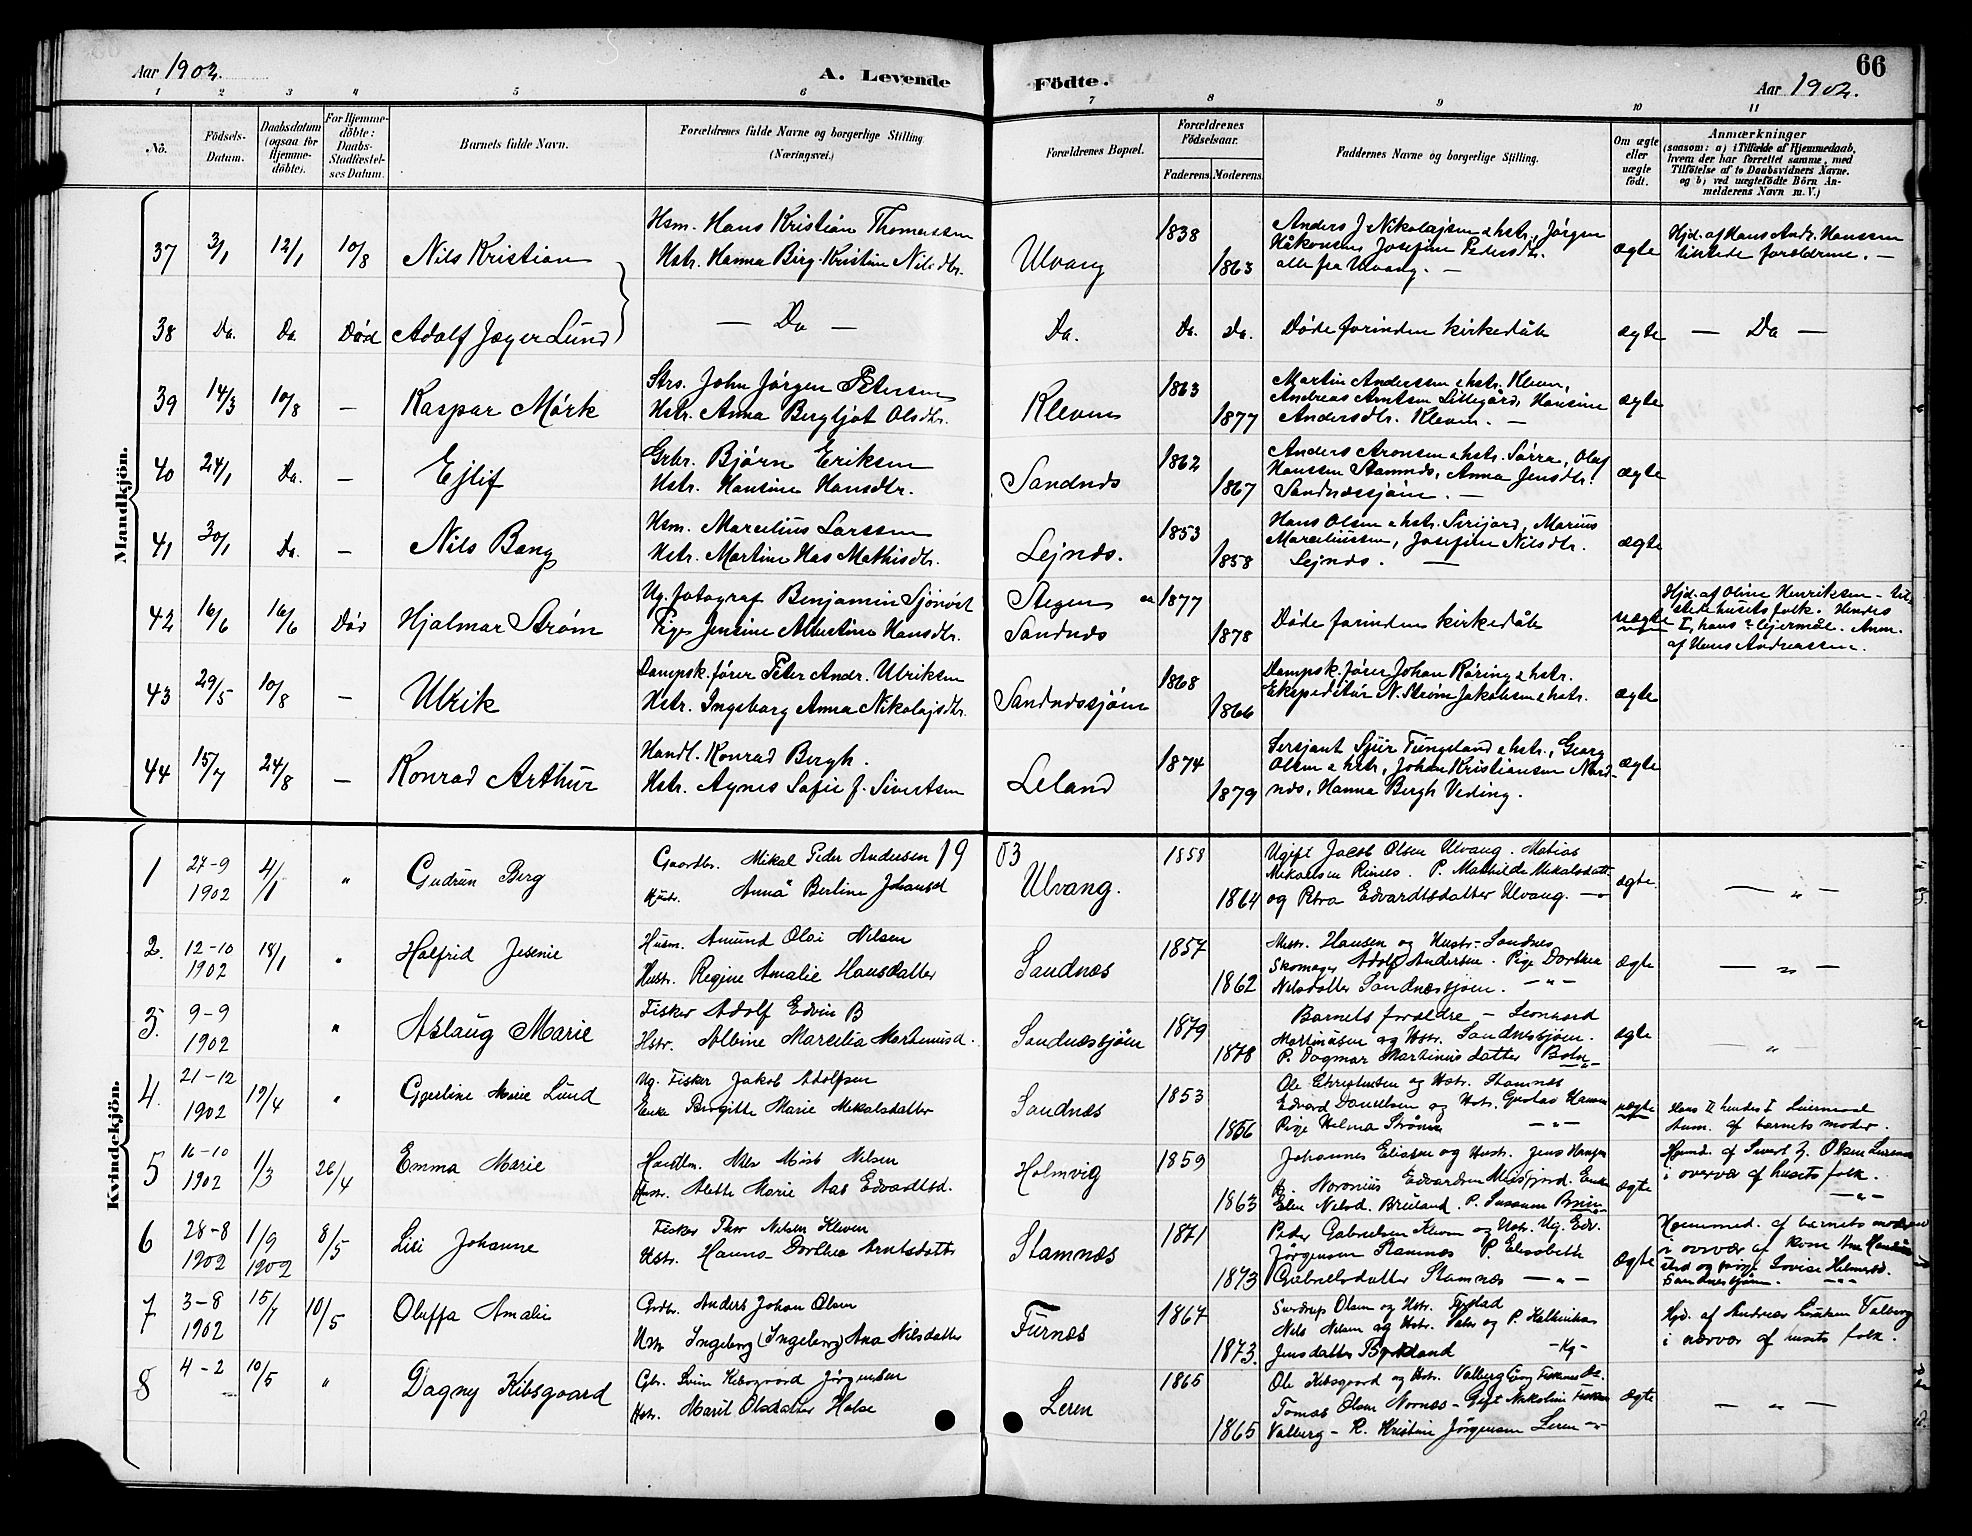 Aar 1902. A. Levende Födte. Aar 1902. 66
1 2 3 4 5 6 7 8 9 10 11
No.
Födsels-Datum.
Daabsdatum (ogsaa for Hjemmedöbte).
For Hjemmedöbte: Daabs-Stadfæstelses Datum.
Barnets fulde Navn.
Forældrenes fulde Navne og borgerlige Stilling (Næringsvei.)
Forældrenes Bopæl.
Forældrenes Födselsaar.
Faderens. Moderens.
Faddernes Navne og borgerlige Stilling.
Om ægte eller uægte födt.
Anmærkninger
(saasom: a) i Tilfælde af Hjemmedaab,
hvem der har forrettet samme, med
Tilföielse af to Daabsvidners Navne.
og b) ved uægtefödte Börn Anmelderens Navn m. V.)
Mandkjön.
37 3/1 12/1 10/8 Nils Kristian
Hsm. Hans Kristian Thomassen
Hstr. Hanna Birg. Kristine Nilsdtr.
Ulvang 1838 1863
Anders J. Nikolajsen & hstr., Jörgen
Håkonsen, Josefine Pedersdtr.
alle fra Ulvang. —
ægte
Hjd. af Hans Andr. Hanssen
tilstede forældrene. —
38 Da. Da. Død Adolf Jæger Lund — Da — Da. Da. Da. Døde forinden kirkedåb ægte — Da —
39 14/3 10/8 — Kaspar Mørk
Strs. John Jørgen Petersen
Hstr. Anna Bergljot Olsdtr.
Kleven 1863 1877
Martin Anderssen & hstr. Kleven,
Andreas Arntsen Lillegård, Hansine
Andersdtr. Kleven. —
ægte
40 24/1 Da. — Ejlif
Grbr. Bjørn Eriksen
Hstr. Hansine Hansdtr.
Sandnæs 1862 1867
Anders Aronsen & hstr. Sørra, Olaf
Hanssen Stamnæs, Anna Jensdtr.
Sandnæssjøen. —
ægte
41 30/1 Da. — Nils Bang
Hsm. Marcelius Larssen
Hstr. Martine Has Mathisdtr.
Lejnæs. 1853 1858
Hans Olsen & hstr. Sirijord, Marius
Marceliussen, Josefine Nilsdtr.
Lejnæs. —
ægte
42 16/6 16/6 Død Hjalmar Strøm
Ug. fotograf Benjamin Sjönöst
Pige Jensine Albertine Hansdtr.
Stegen ca 1877
Sandnæs 1878
Døde forinden kirkedåb
uægte
Hjd. af Oline Henriksen - til-
stede husets folk. Hendes
I, hans 2 lejermål. Anm.
af Hans Andreassen.
43 29/5 10/8 — Ulrik
Dampsk.fører Peter Andr. Ulriksen
Hstr. Ingeborg Anna Nikolajsdtr.
Sandnæssjøen 1868 1866
Dampsk.fører Johan Røring & hstr.
Ekspeditør N. Strøm Jakobsen & hstr.
ægte
44 15/7 24/8 — Konrad Arthur
Handl. Konrad Bergh.
Hstr. Agnes Sofie f. Sivertsen
Leland 1874 1879
Sersjant Sjur Tungeland & hstr., Georg
Olsen & hstr, Johan Kristiansen Nord-
næs, Hanna Bergh Veding.
ægte
Kvindekjön.
1903
1 27-9 1902 4/1 " Gudrun Berg
Gaardbr. Mikal Peder Andersen
Hustr. Anna Berline Johansd
Ulvang. 1858 1864
Ugift Jacob Olsen Ulvang. Matias
Mikaelsen Rinæs. P. Mathilde Mikalsdatt
og Petra Edvardtsdatter Ulvang. —
ægte. — " —
2. 12-10 1902 18/1 " Halfrid Jesenie
Husm. Amund Olai Nilsen
Hustr. Regine Amalie Hansdatter
Sandnæs 1857 1862
Mstr. Hansen og Hustr. Sandnes
Skomager Adolf Andersen. Pige Dorthea
Nilsdatter Sandnæssjøen. — " —
ægte — " —
3. 9-9 1902 " Aslaug Marie
Fisker Adolf Edvin B
Hstr. Albine Marcelia Martinusd.
Sandnæssjøen 1879 1878
Barnets forældre - Leonhard
Martinusen og Hstr. Sandnessjøen.
P. Dagmar Martinus datter Botn
ægte — " —
4. 21-12 1902 12/4 " Gjertine Marie Lund
Ug. Fisker Jakob Adolfsen
Enke Birgitte Marie Mikalsdatter
Sandnæs 1853 1856
Ole Christensen og Hstr. Stamnæs
Edvard Danielsen og Hstr. Gustav Hansen
Pige Helma Strøm — " —
uægte
Hans II hendes I Leiermaal
Anm. af barnets moder.
5 16-10 1902 1/3 26/4 Emma Marie
Hustr. Alette Marie Aas Edvardtsd.
Holmvig 1859 1863
Johannes Eliassen og Hustr. Jens Hansen
ægte
i overvær af husets folk.
— " —
6 28-8 1902 1/9 1902 8/5 Lisi Johanne
Fisker Thor Nilsen Kleven
Hstr. Hanna Dorthea Arntsdatter
Stamnæs 1871 1873
Peder Gabrielsen Kleven og Hstr. Ug. Edv.
Jørgensen Stamnæs P. Elisabeth
Gabrielsdatter Stamnæs — " —
ægte
Hjemmed. af barnets moder
7 3-8 1902 15/7 10/5 Oluffa Amalie
Grdbr. Anders Johan Olsen
Ingeborg (Ingeborg) Ana Nilsdatter
Furnæs 1867 1873.
Sverdrup Olsen og Hstr.
Nils Nilsen og Hstr. og P. Kathrikas
Jensdatter
Hjd. af Andreas Valberg
i nærvær af husets folk.
8 4-2 10/5 " Dagny Kibsgaard
Gbr. Svein Kibsgaard Jørgensen
Hstr. Marit Olsdatter Holse
Leren 1865 1865
Ole Kibsgaard og Hstr. Valberg
Tomas Olsen Nornæs - Gift Nikoline
Valberg - R. Kristine Jørgensen Leren
ægte — " —